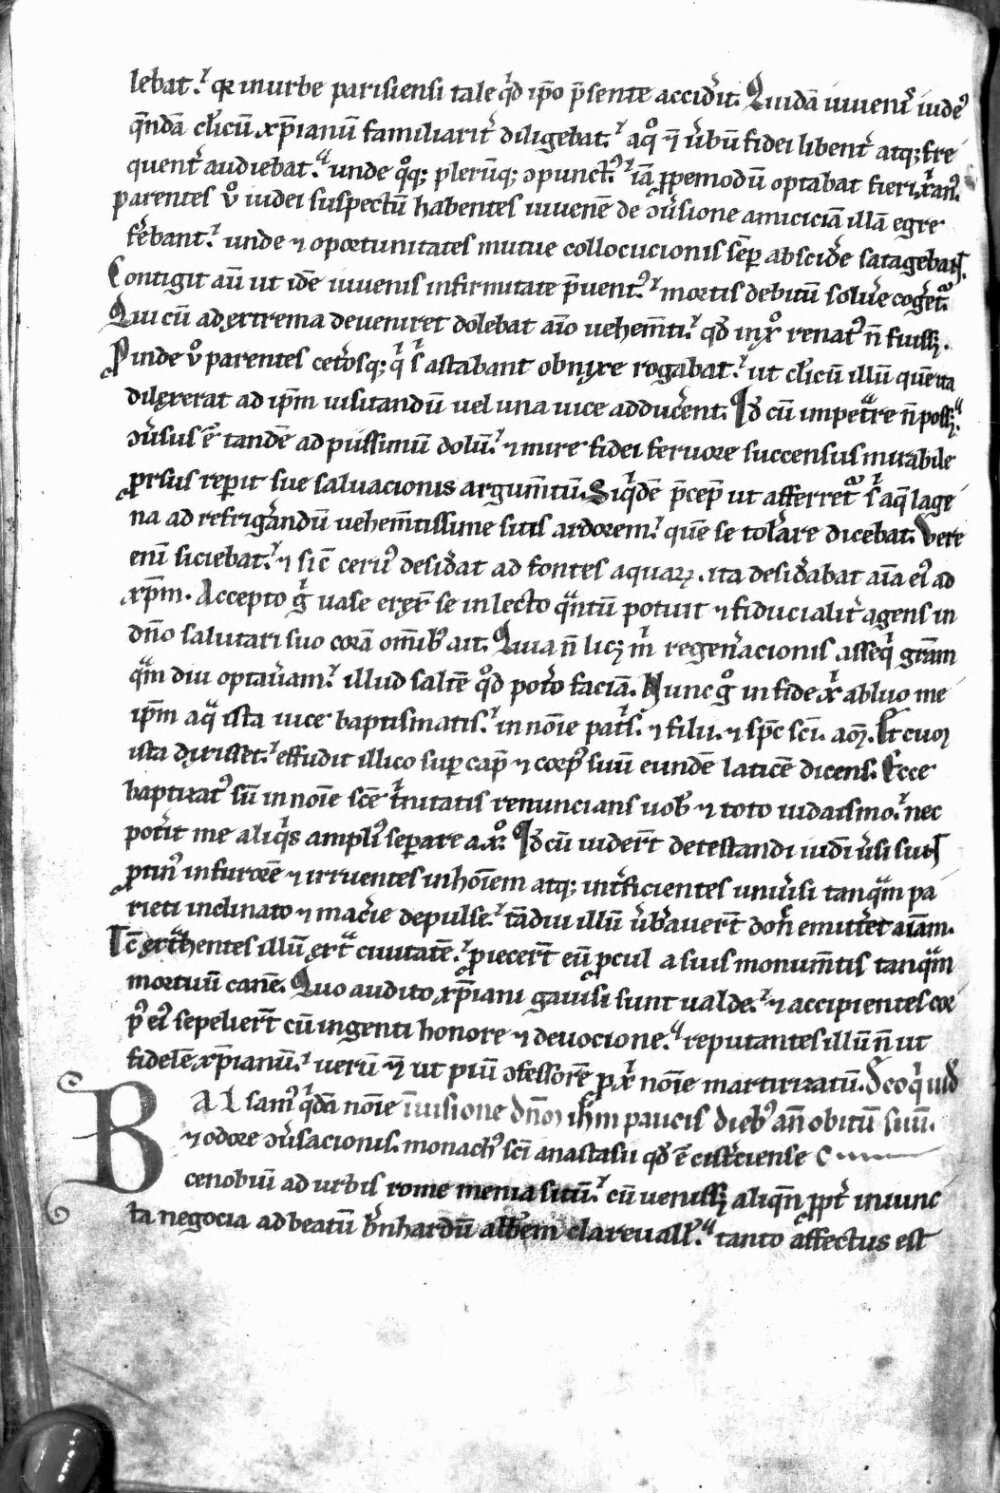 lebat. qr in urbe parisiensi tale qd ipo p̄sente accidit. Quidā iuuenis iudeꝰ
quēdā cl'icū xp̄ianū familiarit' diligebat. a quo ⁊ u'bū fidei libent' atq; fre
quent' audiebat. unde qq; pleruq; ɔpunctꝰ iā ꝓpemodū optabat fieri xp̄anꝰ.
parentes ů iudei suspectū habentes iuuenē de ɔu'sione amiciciā illā egre
ferebant. unde ⁊ oportunitates mutue collocucionis sēp abscidere satagebant.
Contigit aū ut idē iuuenis infirmitate p̄uentꝰ mortis debitū soluere cogeret'.
Qui cū ad extrema deueniret dolebat aīo uehem̄ti. qd in xp̊ renatꝰ n̄ fuiss;.
Proinde ů parentes ceterosq; qi s' astabant obnixe rogabat. ut cl'icū illū quē ita
dilexerat ad ip̄m uisitandū uel una uice adducerent. Qd cū impetrare n̄ poss;.
ɔu'sus ē tandē ad piissimū dolū. ⁊ mire fidei feruore succensus mirabile
prorsus reperit sue saluacionis argum̄tū. Siquidē p̄cepit ut afferret' s' aq̄ lage
na ad refrigerandū uehem̄tissime sitis ardorem. quē se tolerare dicebat. Vere
enī siciebat. ⁊ sic ceruꝰ desiderat ad fontes aquaꝝ. ita desiderabat aīa eiꝰ ad
xp̄m. Accepto g̊ uase erexit se in lecto q̈ntū potuit ⁊ fiducialit' agens in
dn̄o salutari suo corā om̄ibꝰ ait. Quia n̄ lic; m̄ regeneracionis asseq̄ gr̄am
q̈m diu optaueram. illud saltē qd potero faciā. Nunc g̊ in fide xp̄i abluo me
ip̄m aq̈ ista uice baptismatis. in noīe pat's. ⁊ filii. ⁊ sp̄c sc̄i. am̄. Et cum
ista dixisset. effudit illico super capd ⁊ corpꝰ suū eundē laticē dicens. Ecce
baptizatꝰ sū in noīe sc̄e t'nitatis renuncians uobis ⁊ toto iudaismo. nec
poterit me aliquis ampliꝰ separare a xp̊. Qd cū uiderent detestandi iudei uersi sunt
protinꝰ in furorē ⁊ irruentes in hoīem atq; int'ficientes uniu'si tanq̈m pa
rieti inclinato ⁊ macerie depulse. tādiu illū u'berauerunt don̄ emitteret aīam.
Tc̄ extrahentes illū extra ciuitatē. proiecerunt eū procul a suis monum̄tis tanq̈m
mortuū canē. Quo audito xp̄iani gauisi sunt ualde. ⁊ accipientes cor
pꝰ eiꝰ sepelierunt cū ingenti honore ⁊ deuocione. reputantes illū n̄ ut
fidelē xp̄ianū. uerū ⁊ ut piū ɔfessorē pro xp̄i noīe martirizatū. De eo qui uid
BALsamꝰ qidā noīe in uisione dn̄m ih̄m paucis diebꝰ an̄ obitū suū.
⁊ odore ɔu'sacionis. monachꝰ sc̄i anastasii qd ē cist'ciense
cenobiū ad urbis rome menia sitū. cū ueniss; aliqn̄ ꝓpt' iniunc
ta negocia ad beatū b'nhardū abbem clareuall'. tanto affectus est